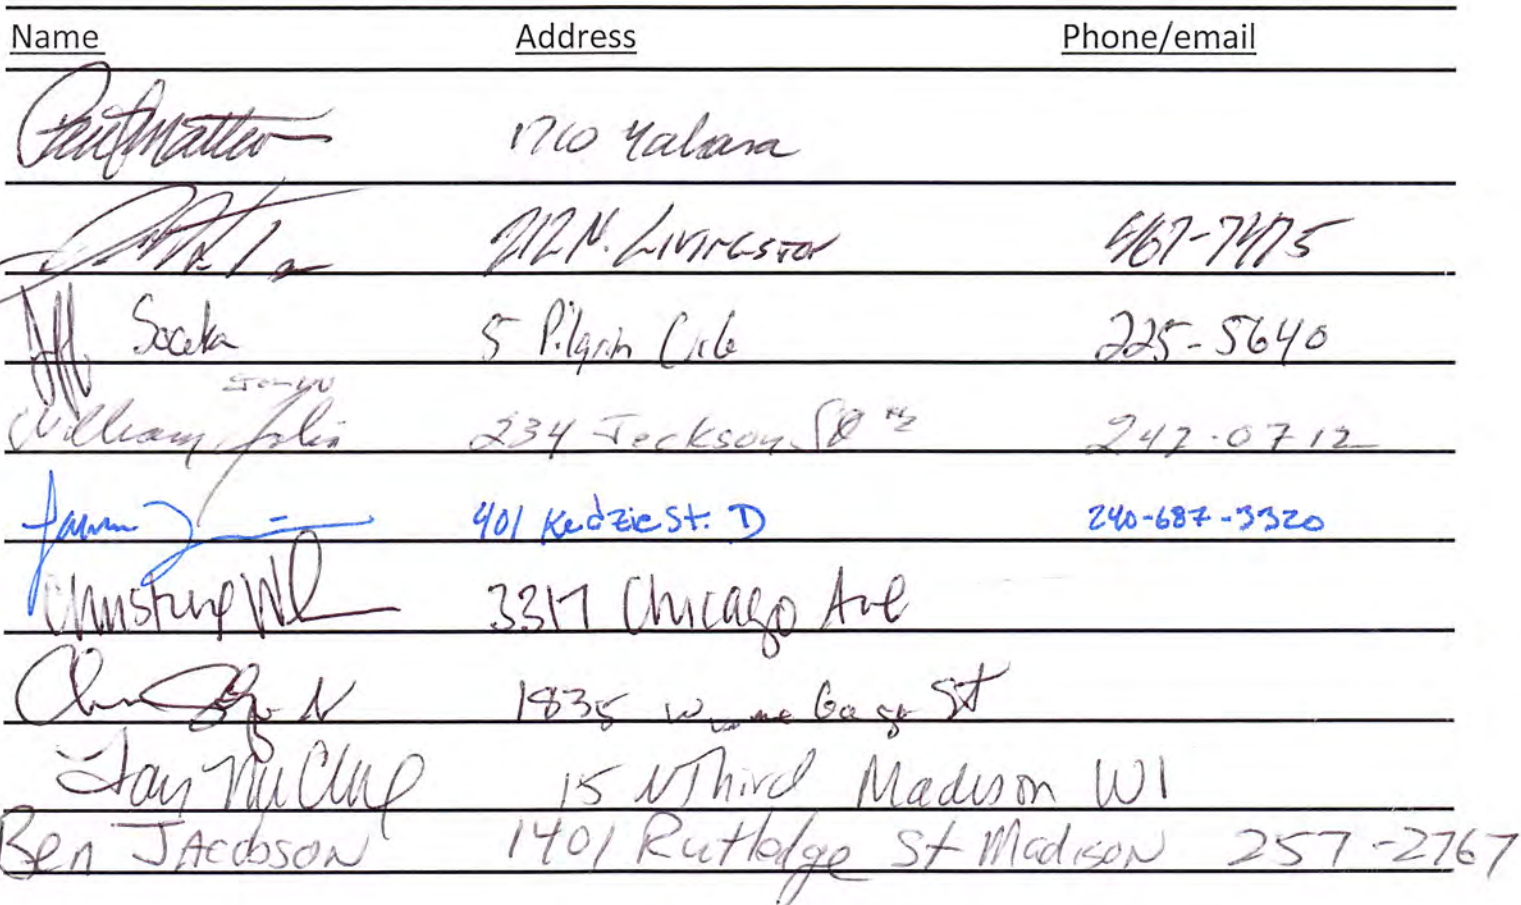 Name Address Phone/email
Paul Matteo 1710 Yahara
212 N. LIVINGSTON 467-7475
Jeff Soceka 5 Pilgrim Circle 225-5640
William Jolin 234 Jackson St #2 242-0712
401 Kedzie St. D 240-687-3320
Christine 3317 Chicago Ave
1835 St
Jay McClure 15 N Third Madison WI
Ben JAcobsoN 1401 Rutledge St MadisoN 257-2767